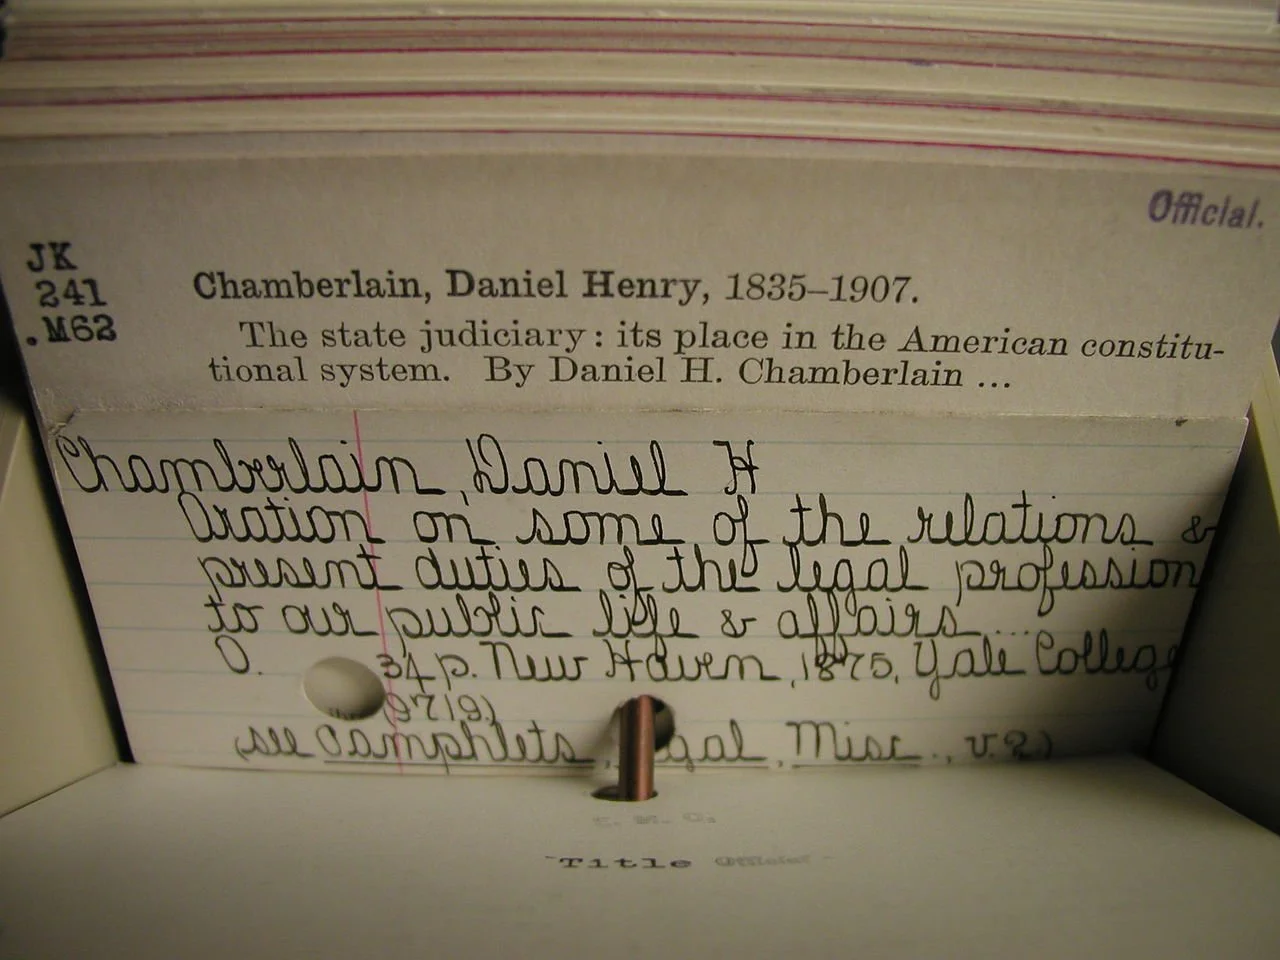 Official.
JK
241
.M62
Chamberlain, Daniel Henry, 1835–1907.
The state judiciary: its place in the American constitu-
tional system. By Daniel H. Chamberlain ...
Chamberlain, Daniel H
Oration on some of the relations &
present duties of the legal profession
to our public life & affairs....
O. 34 p. New Haven, 1875, Yale College
(9719)
(see Pamphlets, Misc., v.2)
Title Official